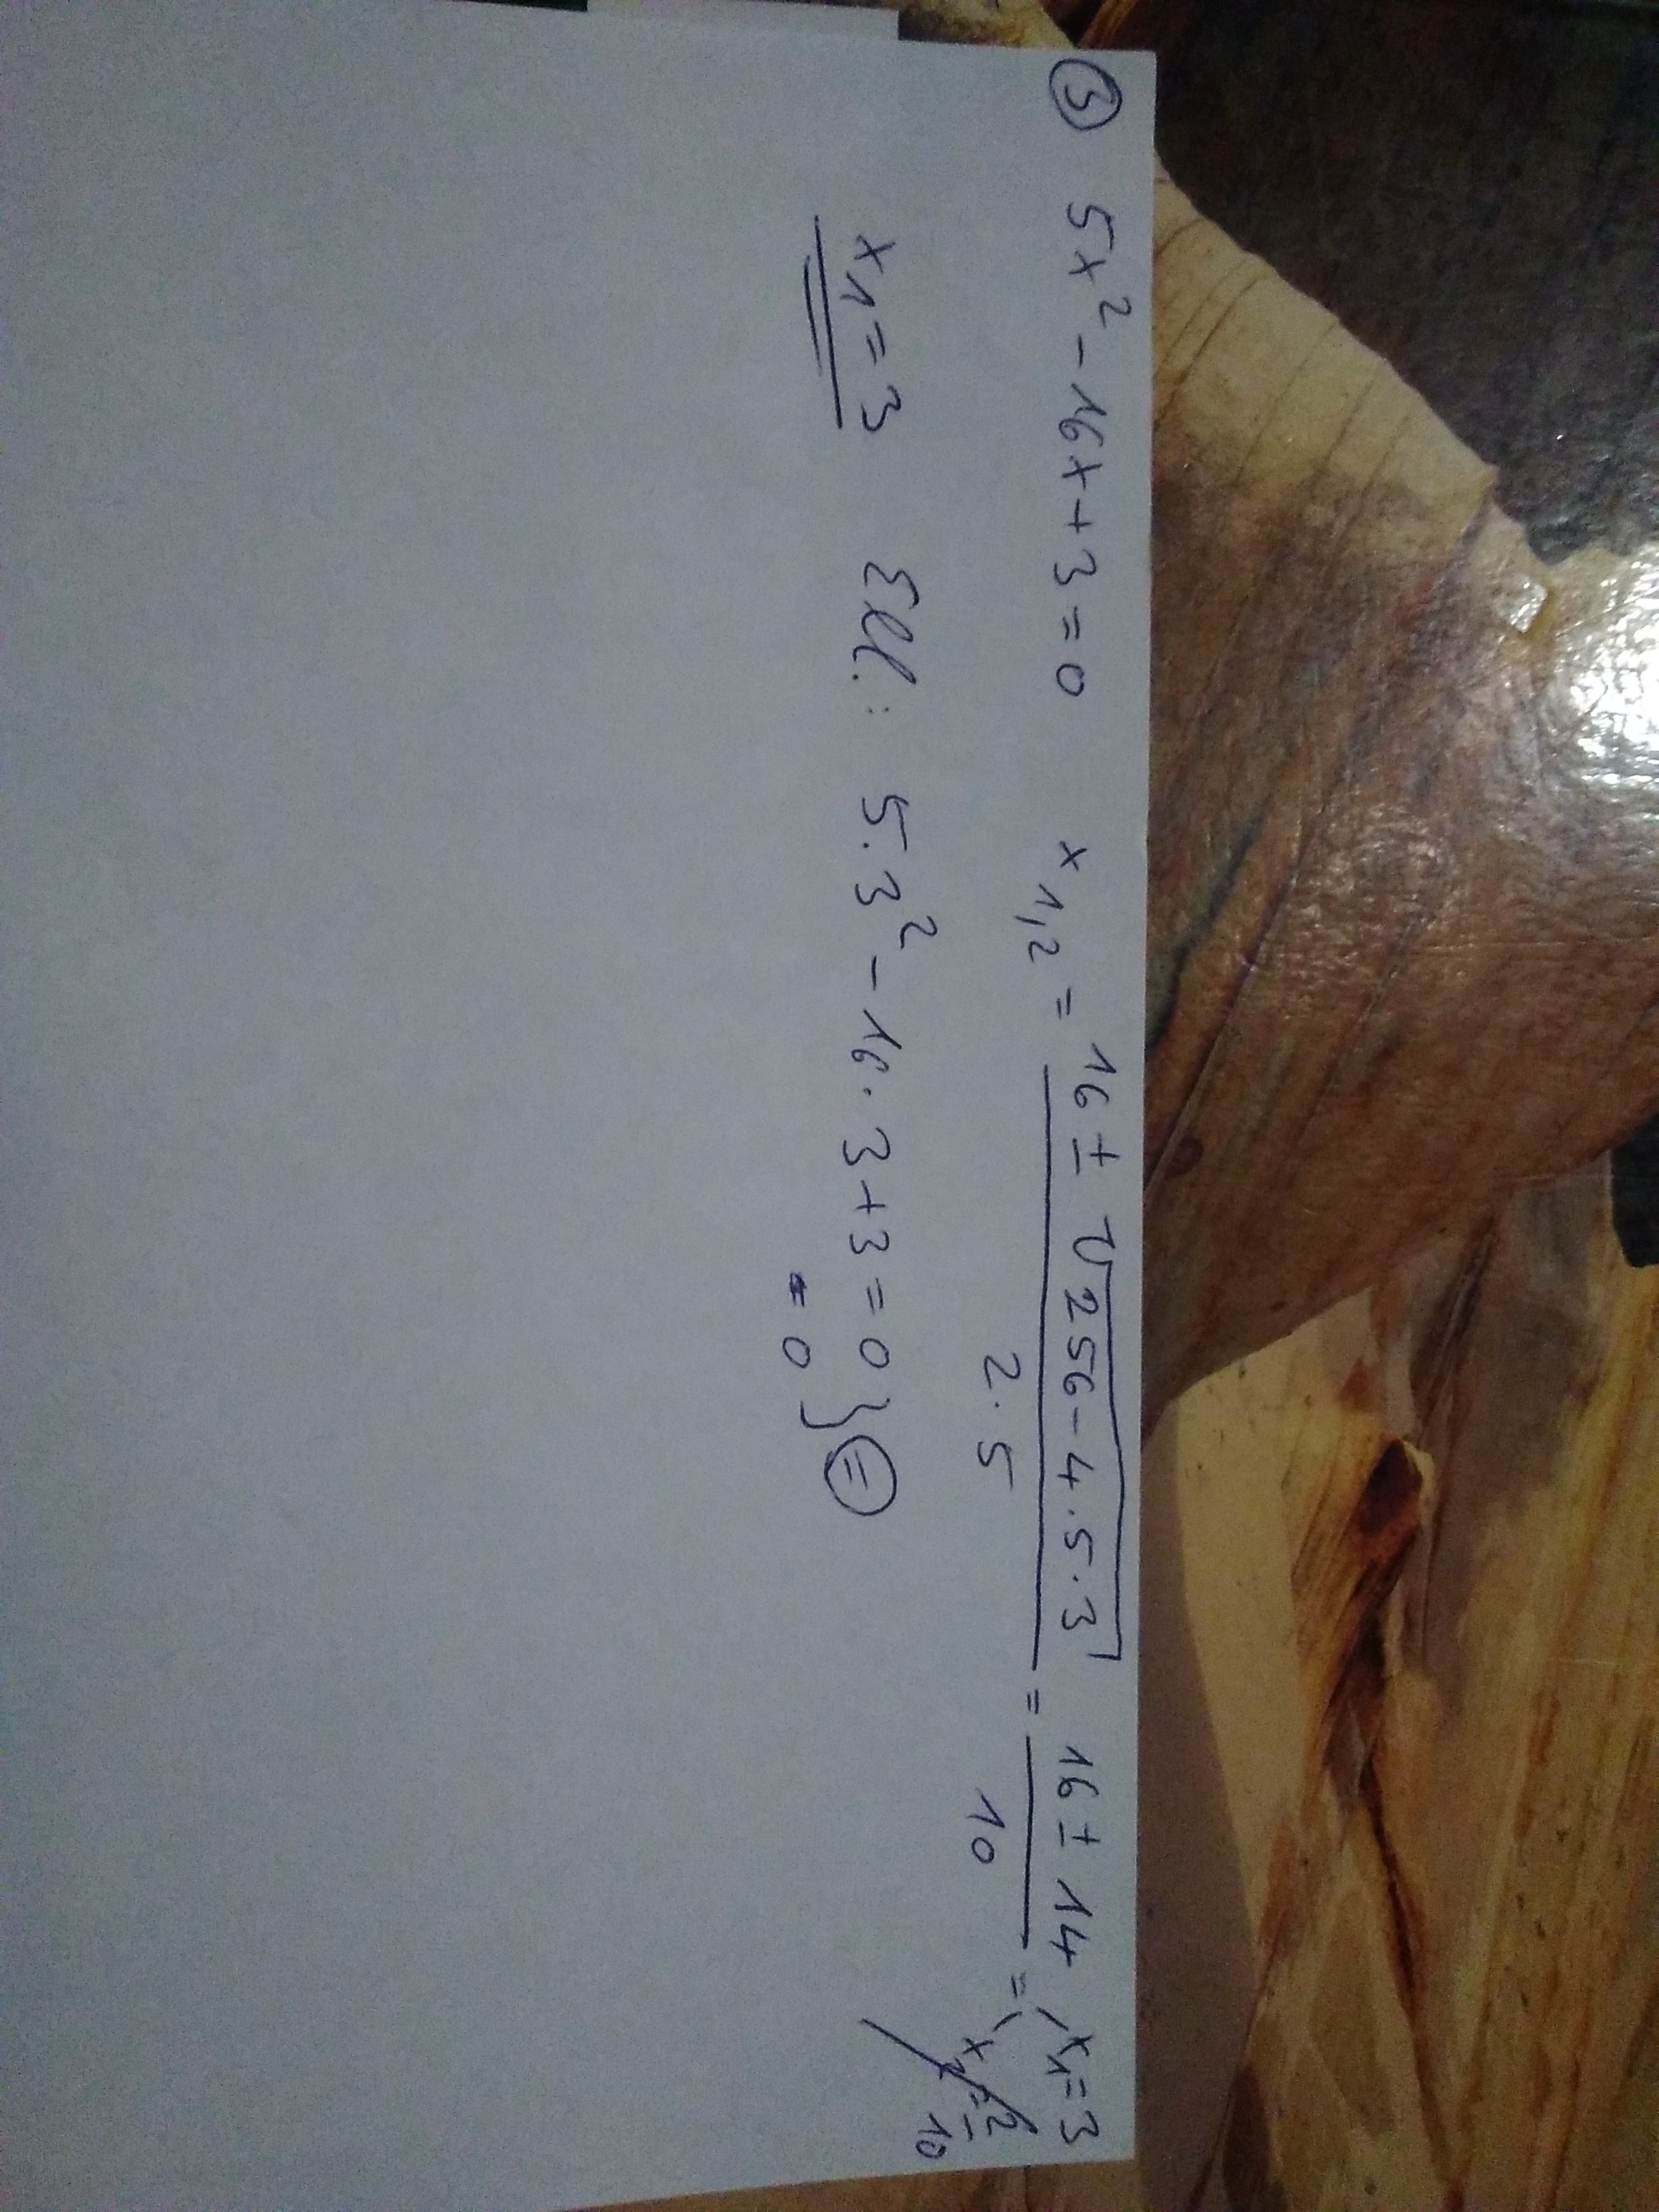 ③ 5x² - 16x + 3 = 0 x₁,₂ = (16 ± √(256 - 4 . 5 . 3)) / (2 . 5) = (16 ± 14) / 10 = x₁ = 3
x₂ = 2/10
x₁ = 3 Ell.: 5 . 3² - 16 . 3 + 3 = 0 } =
= 0